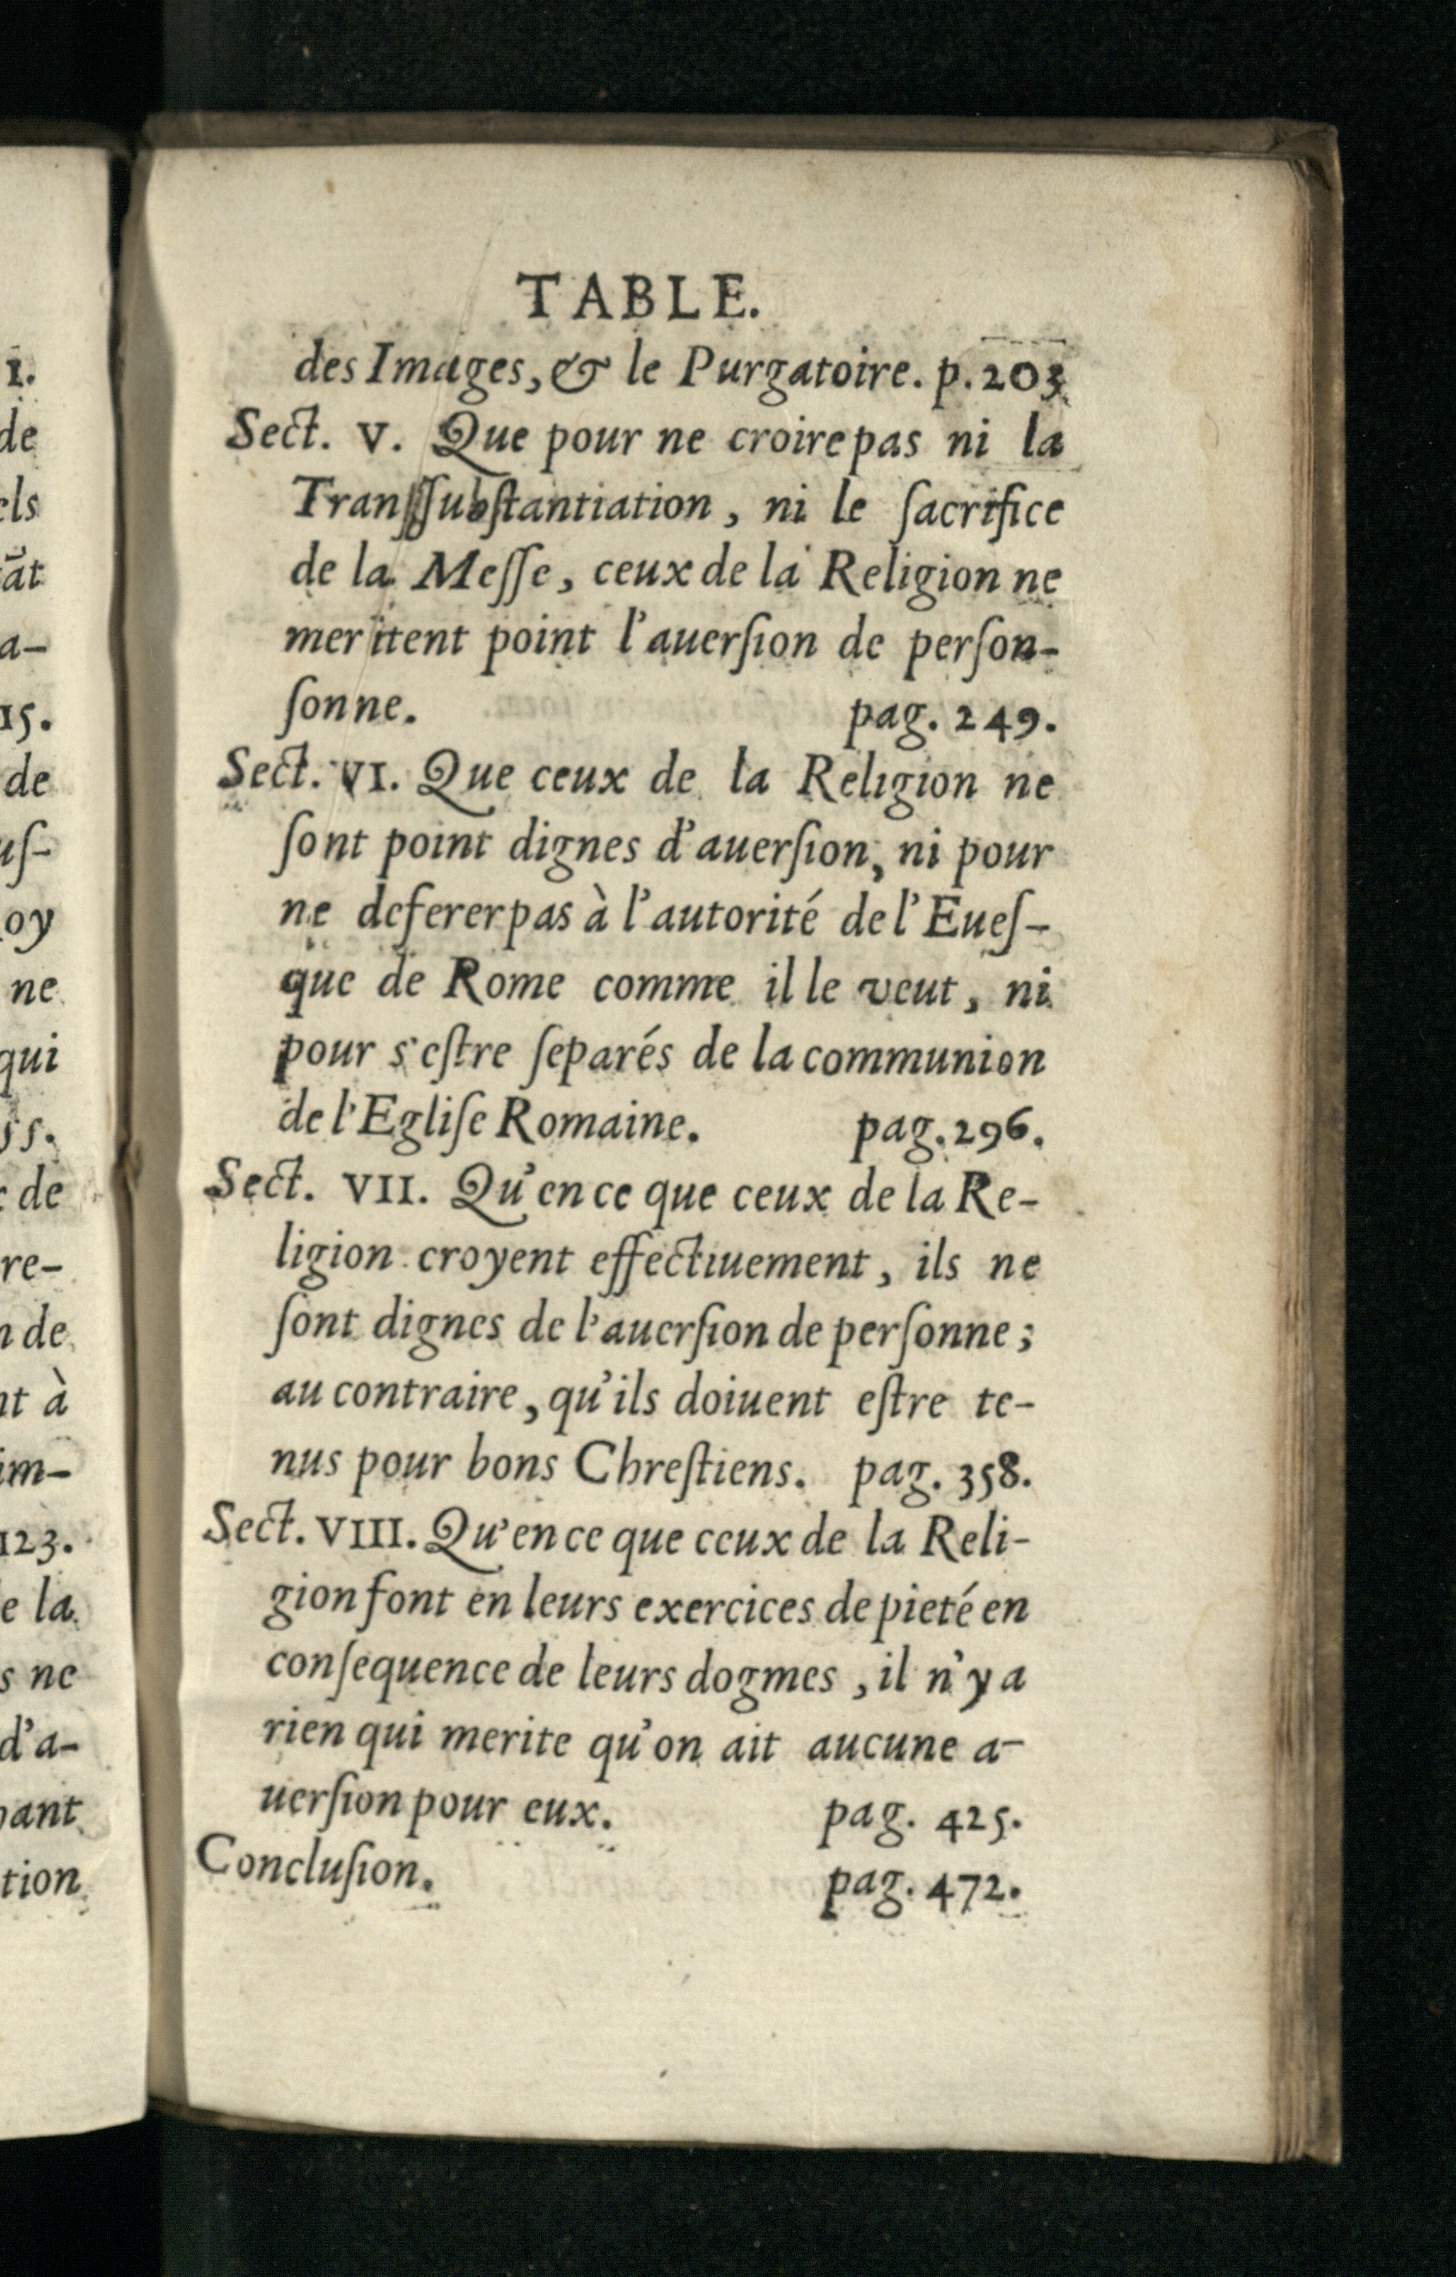 1.
de
els
tāt
a-
15.
de
uſ-
oy
ne
qui
55.
de
re-
n de
nt à
im-
123.
e la
s ne
d'a-
pant
tion
TABLE.
des Images, & le Purgatoire. p. 203
Sect. V. Que pour ne croire pas ni la
Tranſſubſtantiation, ni le ſacrifice
de la Meſſe, ceux de la Religion ne
meritent point l'auerſion de perſon-
ſonne. pag. 249.
Sect. VI. Que ceux de la Religion ne
ſont point dignes d'auerſion, ni pour
ne deferer pas à l'autorité de l'Eueſ-
que de Rome comme il le veut, ni
pour s'eſtre ſeparés de la communion
de l'Egliſe Romaine. pag. 296.
Sect. VII. Qu'en ce que ceux de la Re-
ligion croyent effectiuement, ils ne
ſont dignes de l'auerſion de perſonne;
au contraire, qu'ils doiuent eſtre te-
nus pour bons Chreſtiens. pag. 358.
Sect. VIII. Qu'en ce que ceux de la Reli-
gion font en leurs exercices de pieté en
conſequence de leurs dogmes, il n'y a
rien qui merite qu'on ait aucune a-
uerſion pour eux. pag. 425.
Concluſion. pag. 472.